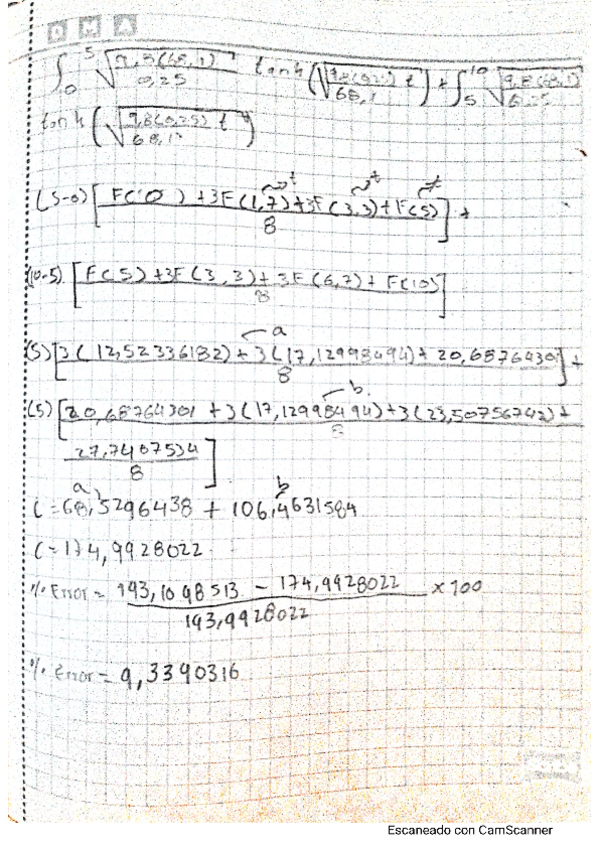 D M A
∫₀⁵ √(9,8(68,1)/0,25) tanh (√(9,8(0,25)/68,1) t) + ∫₅¹⁰ √(9,8(68,1)/0,25)
tanh (√(9,8(0,25)/68,1) t)
t t t
(5-0) [F(0) + 3F(1,7) + 3F(3,3) + F(5) / 8] +
(10-5) [F(5) + 3F(3,3) + 3F(6,7) + F(10) / 8]
a
(5) [3(12,52336182) + 3(17,12998494) + 20,68764301 / 8] +
b
(5) [20,68764301 + 3(17,12998494) + 3(23,50756742) + / 8
27,7407534 / 8]
a b
C = 68,5296438 + 106,4631584
C = 174,9928022
% Error = 193,1098513 - 174,9928022 / 193,9928022 x 100
% Error = 9,3390316
Escaneado con CamScanner